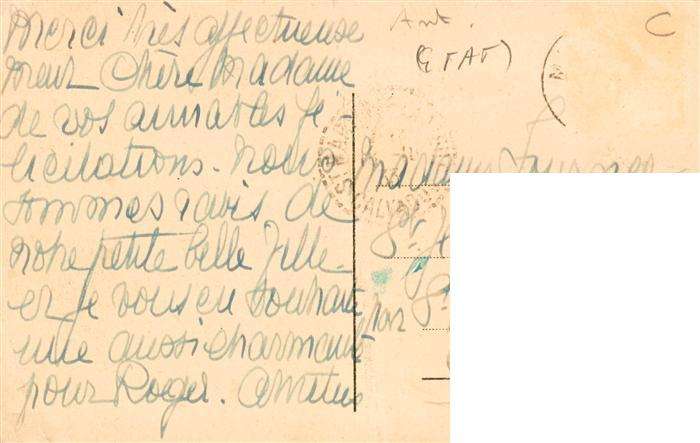 Merci très affectueuse
ment Chère Madame
de vos aimables fé-
licitations. Nous
sommes ravis de
notre petite belle fille
et je vous en souhaite
une aussi charmante
pour Roger. Amitiés
Ant.
(ETAT)
C
Madame
St
par St
CALVADOS